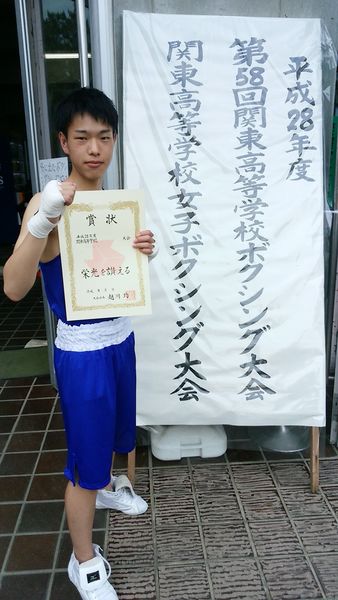 平成28年度
第58回関東高等学校ボクシング大会
関東高等学校女子ボクシング大会
賞状
大会
栄光を讃える